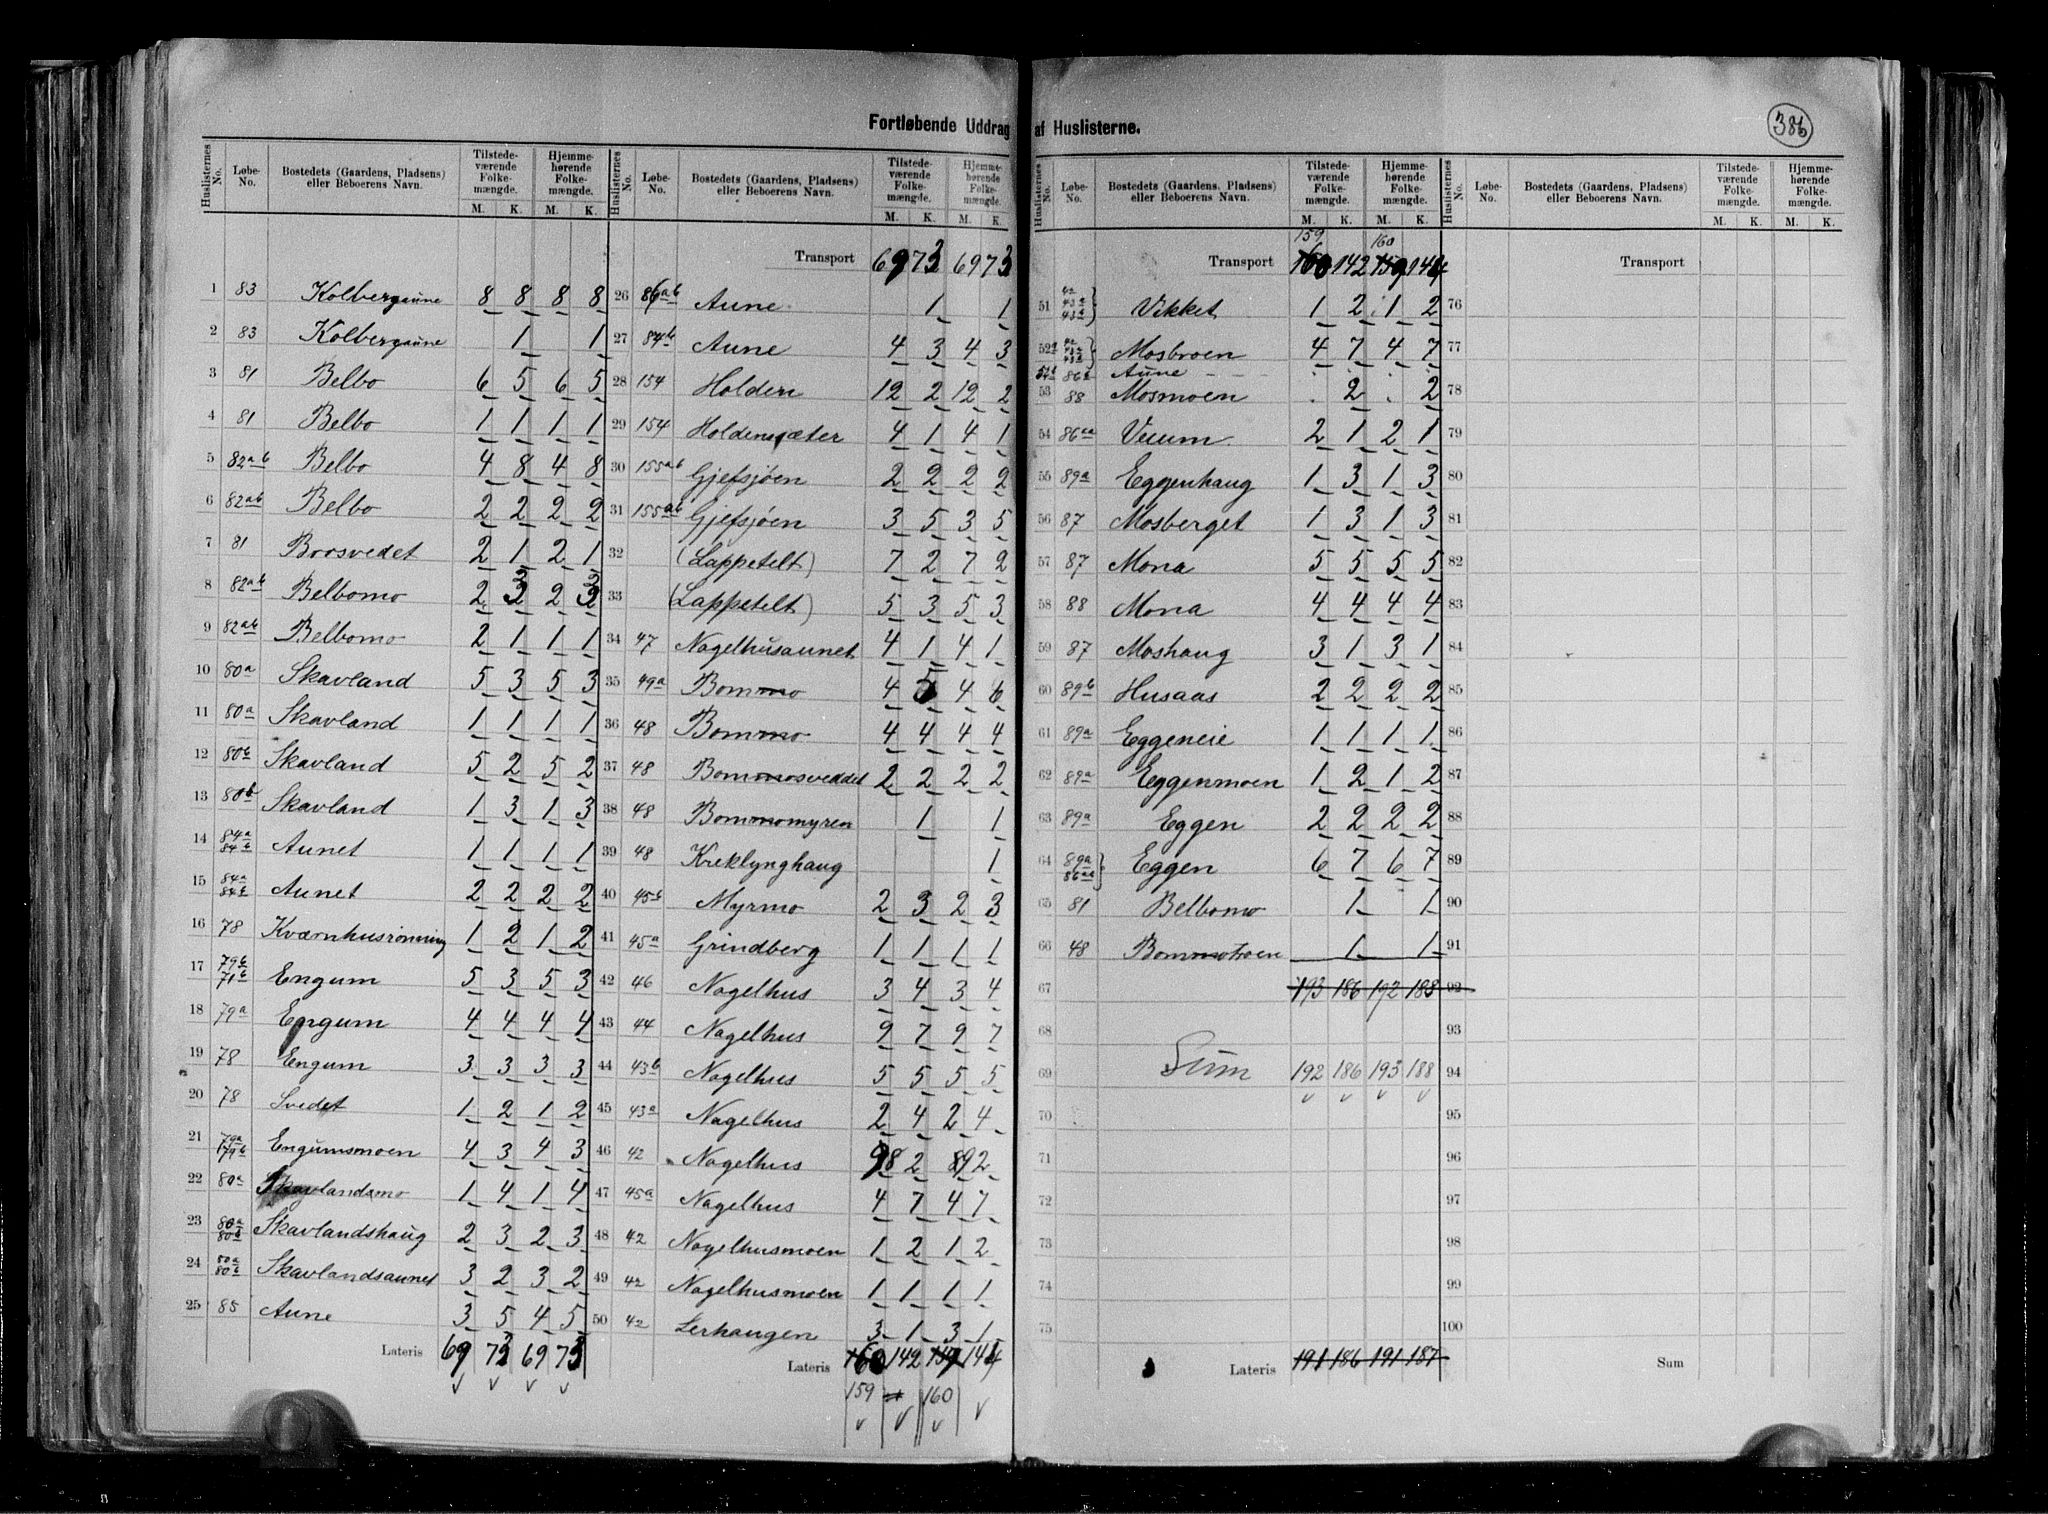 Fortløbende Uddrag af Huslisterne.
386
Huslisternes No. Løbe-No. Bostedets (Gaardens, Pladsens) eller Beboerens Navn. Tilstede-værende Folke-mængde. M. K. Hjemme-hørende Folke-mængde. M. K.
1 83 Kolbergaune 8 8 8 8
2 83 Kolbergaune 1 1
3 81 Belbo 6 5 6 5
4 81 Belbo 1 1 1 1
5 82ab Belbo 4 8 4 8
6 82ab Belbo 2 2 2 2
7 81 Borsvedet 2 1 2 1
8 82ab Belbomo 2 3 2 3
9 82ab Belbomo 2 1 1 1
10 80a Skavland 5 3 5 3
11 80a Skavland 1 1 1 1
12 80b Skavland 5 2 5 2
13 80b Skavland 1 3 1 3
14 84a 84b Aunet 1 1 1 1
15 84a 84b Aunet 2 2 2 2
16 78 Kværnhusrønning 1 2 1 2
17 79b 71b Engum 5 3 5 3
18 79a Engum 4 4 4 4
19 78 Engum 3 3 3 3
20 78 Svedet 1 2 1 2
21 79a 79b Engumsmoen 4 3 4 3
22 80a Skavlandsmo 1 4 1 4
23 80a 80b Skavlandshaug 2 3 2 3
24 80a 80b Skavlandsaunet 3 2 3 2
25 85 Aune 3 5 4 5
Lateris 69 73 69 73
Huslisternes No. Løbe-No. Bostedets (Gaardens, Pladsens) eller Beboerens Navn. Tilstede-værende Folke-mængde. M. K. Hjemme-hørende Folke-mængde. M. K.
Transport 69 73 69 73
26 86ab Aune 1 1
27 84b Aune 4 3 4 3
28 154 Holden 12 2 12 2
29 154 Holdensæter 4 1 4 1
30 155ab Gjefsjøen 2 2 2 2
31 155ab Gjefsjøen 3 5 3 5
32 (Lappetelt) 7 2 7 2
33 (Lappetelt) 5 3 5 3
34 47 Nagelhusaunet 4 1 4 1
35 49a Bommo 4 5 4 6
36 48 Bommo 4 4 4 4
37 48 Bommosveddet 2 2 2 2
38 48 Bommomyren 1 1
39 48 Kreklynghaug 1
40 45b Myrmo 2 3 2 3
41 45a Grindberg 1 1 1 1
42 46 Nagelhus 3 4 3 4
43 44 Nagelhus 9 7 9 7
44 43b Nagelhus 5 5 5 5
45 43a Nagelhus 2 4 2 4
46 42 Nagelhus 98 2 89 2
47 45a Nagelhus 4 7 4 7
48 42 Nagelhusmoen 1 2 1 2
49 42 Nagelhusmoen 1 1 1 1
50 42 Lerhaugen 3 1 3 1
Lateris 160 142 159 144
159 160
Huslisternes No. Løbe-No. Bostedets (Gaardens, Pladsens) eller Beboerens Navn. Tilstede-værende Folke-mængde. M. K. Hjemme-hørende Folke-mængde. M. K.
159 160
Transport 160 142 159 144
51 42 43a 43a Vikket 1 2 1 2
52a Mosbroen 4 7 4 7
86b Aune
53 88 Mosmoen 2 2
54 86aa Veium 2 1 2 1
55 89a Eggenhaug 1 3 1 3
56 87 Mosberget 1 3 1 3
57 87 Mona 5 5 5 5
58 88 Mona 4 4 4 4
59 87 Moshaug 3 1 3 1
60 89b Husaas 2 2 2 2
61 89a Eggeneie 1 1 1 1
62 89a Eggenmoen 1 2 1 2
63 89a Eggen 2 2 2 2
64 89a 86aa Eggen 6 7 6 7
65 81 Belbomo 1 1
66 48 Bommotroen 1 1
67 193 186 192 188
68
69 Sum 192 186 193 188
70
71
72
73
74
75
Lateris 191 186 191 187
Huslisternes No. Løbe-No. Bostedets (Gaardens, Pladsens) eller Beboerens Navn. Tilstede-værende Folke-mængde. M. K. Hjemme-hørende Folke-mængde. M. K.
Transport
76
77
78
79
80
81
82
83
84
85
86
87
88
89
90
91
92
93
94
95
96
97
98
99
100
Sum